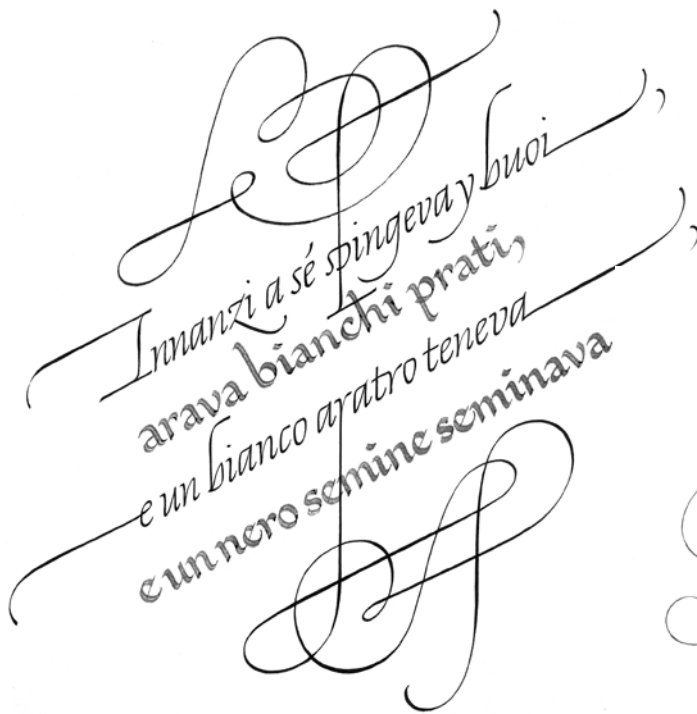 Innanzi a sé spingeva y buoi,
arava bianchi prati,
e un bianco aratro teneva,
e un nero semine seminava